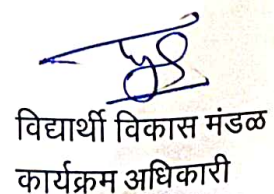 विद्यार्थी विकास मंडळ
कार्यक्रम अधिकारी